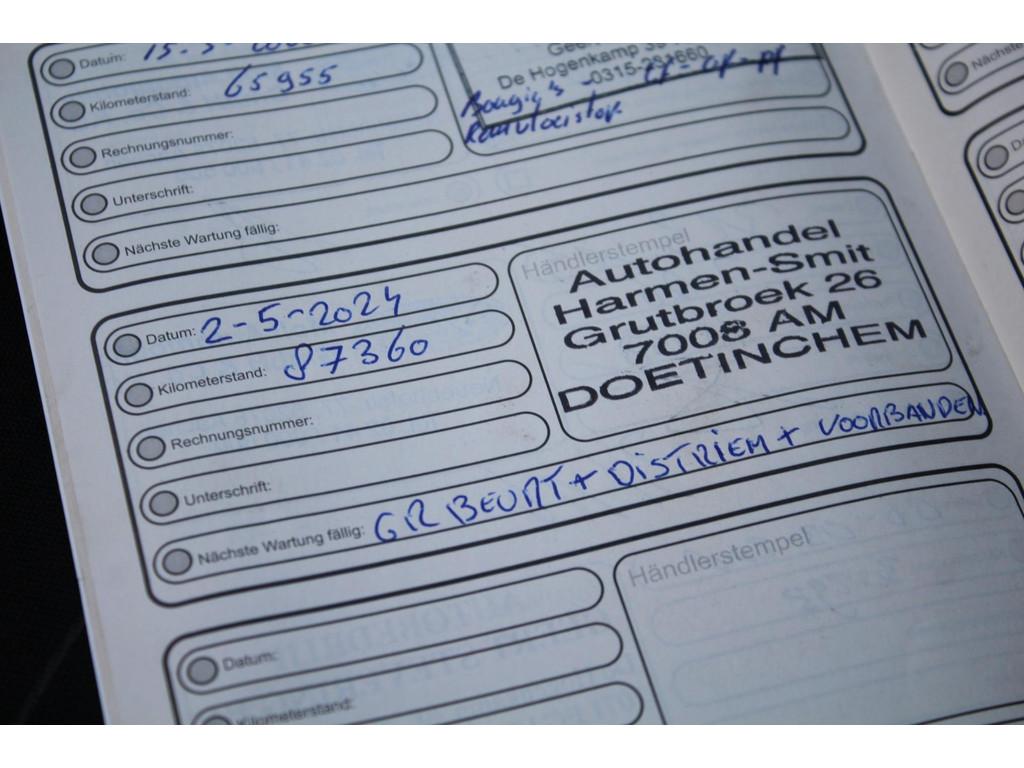 Datum: 15-5-
Kilometerstand: 65955
Rechnungsnummer:
Unterschrift:
Nächste Wartung fällig:
De Hogenkamp
Bougie's
Nächste
Datum: 2-5-2024
Kilometerstand: 87360
Rechnungsnummer:
Unterschrift:
Nächste Wartung fällig: GR BEURT + DISTRIEM + VOORBANDEN
Händlerstempel
Autohandel
Harmen-Smit
Grutbroek 26
7008 AM
DOETINCHEM
Datum:
Kilometerstand:
Händlerstempel